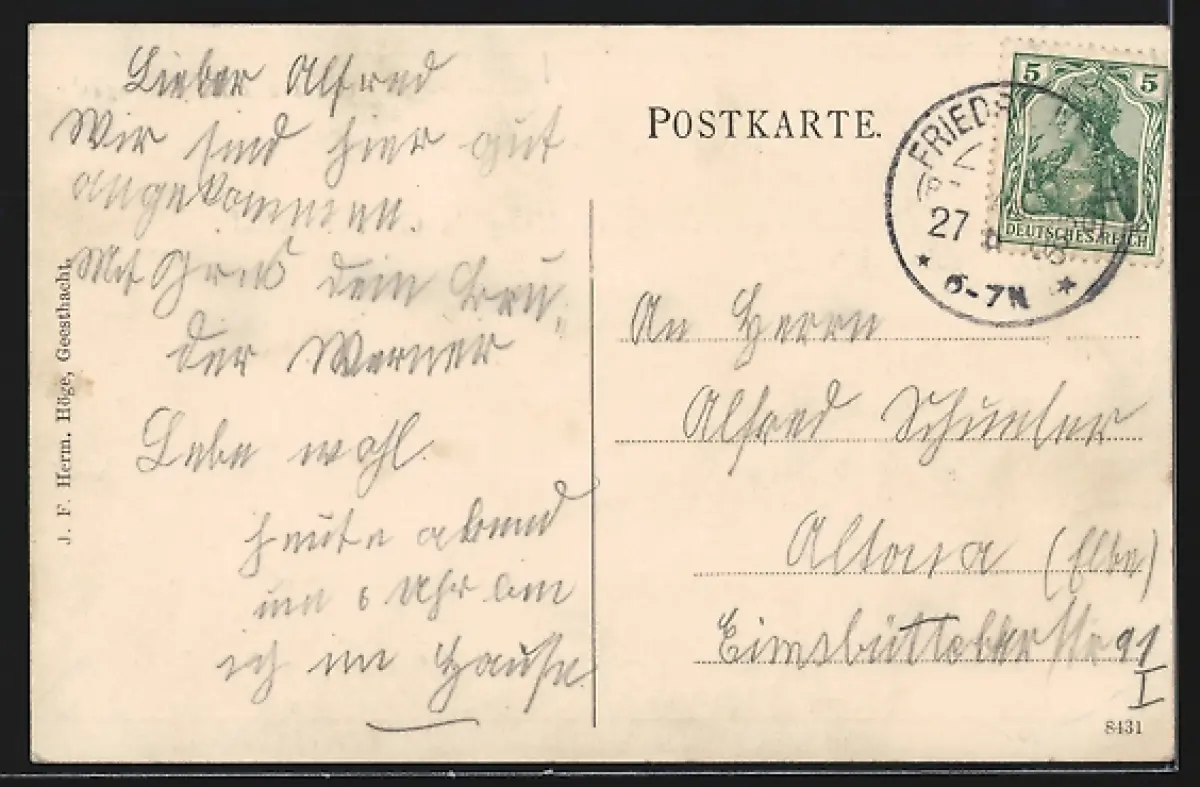 Lieber Alfred
Wir sind hier gut
angekommen.
Mit Gruß dein Bru-
der Werner
Lebe wohl.
heute abend
um 6 Uhr bin
ich im Hause
J. F. Herm. Höge, Geesthacht.
POSTKARTE.
5 5
DEUTSCHES REICH
FRIEDR
27
6-7N
An Herrn
Alfred
Altona (Elbe)
Eimsbüttelerstr 91
I
8431